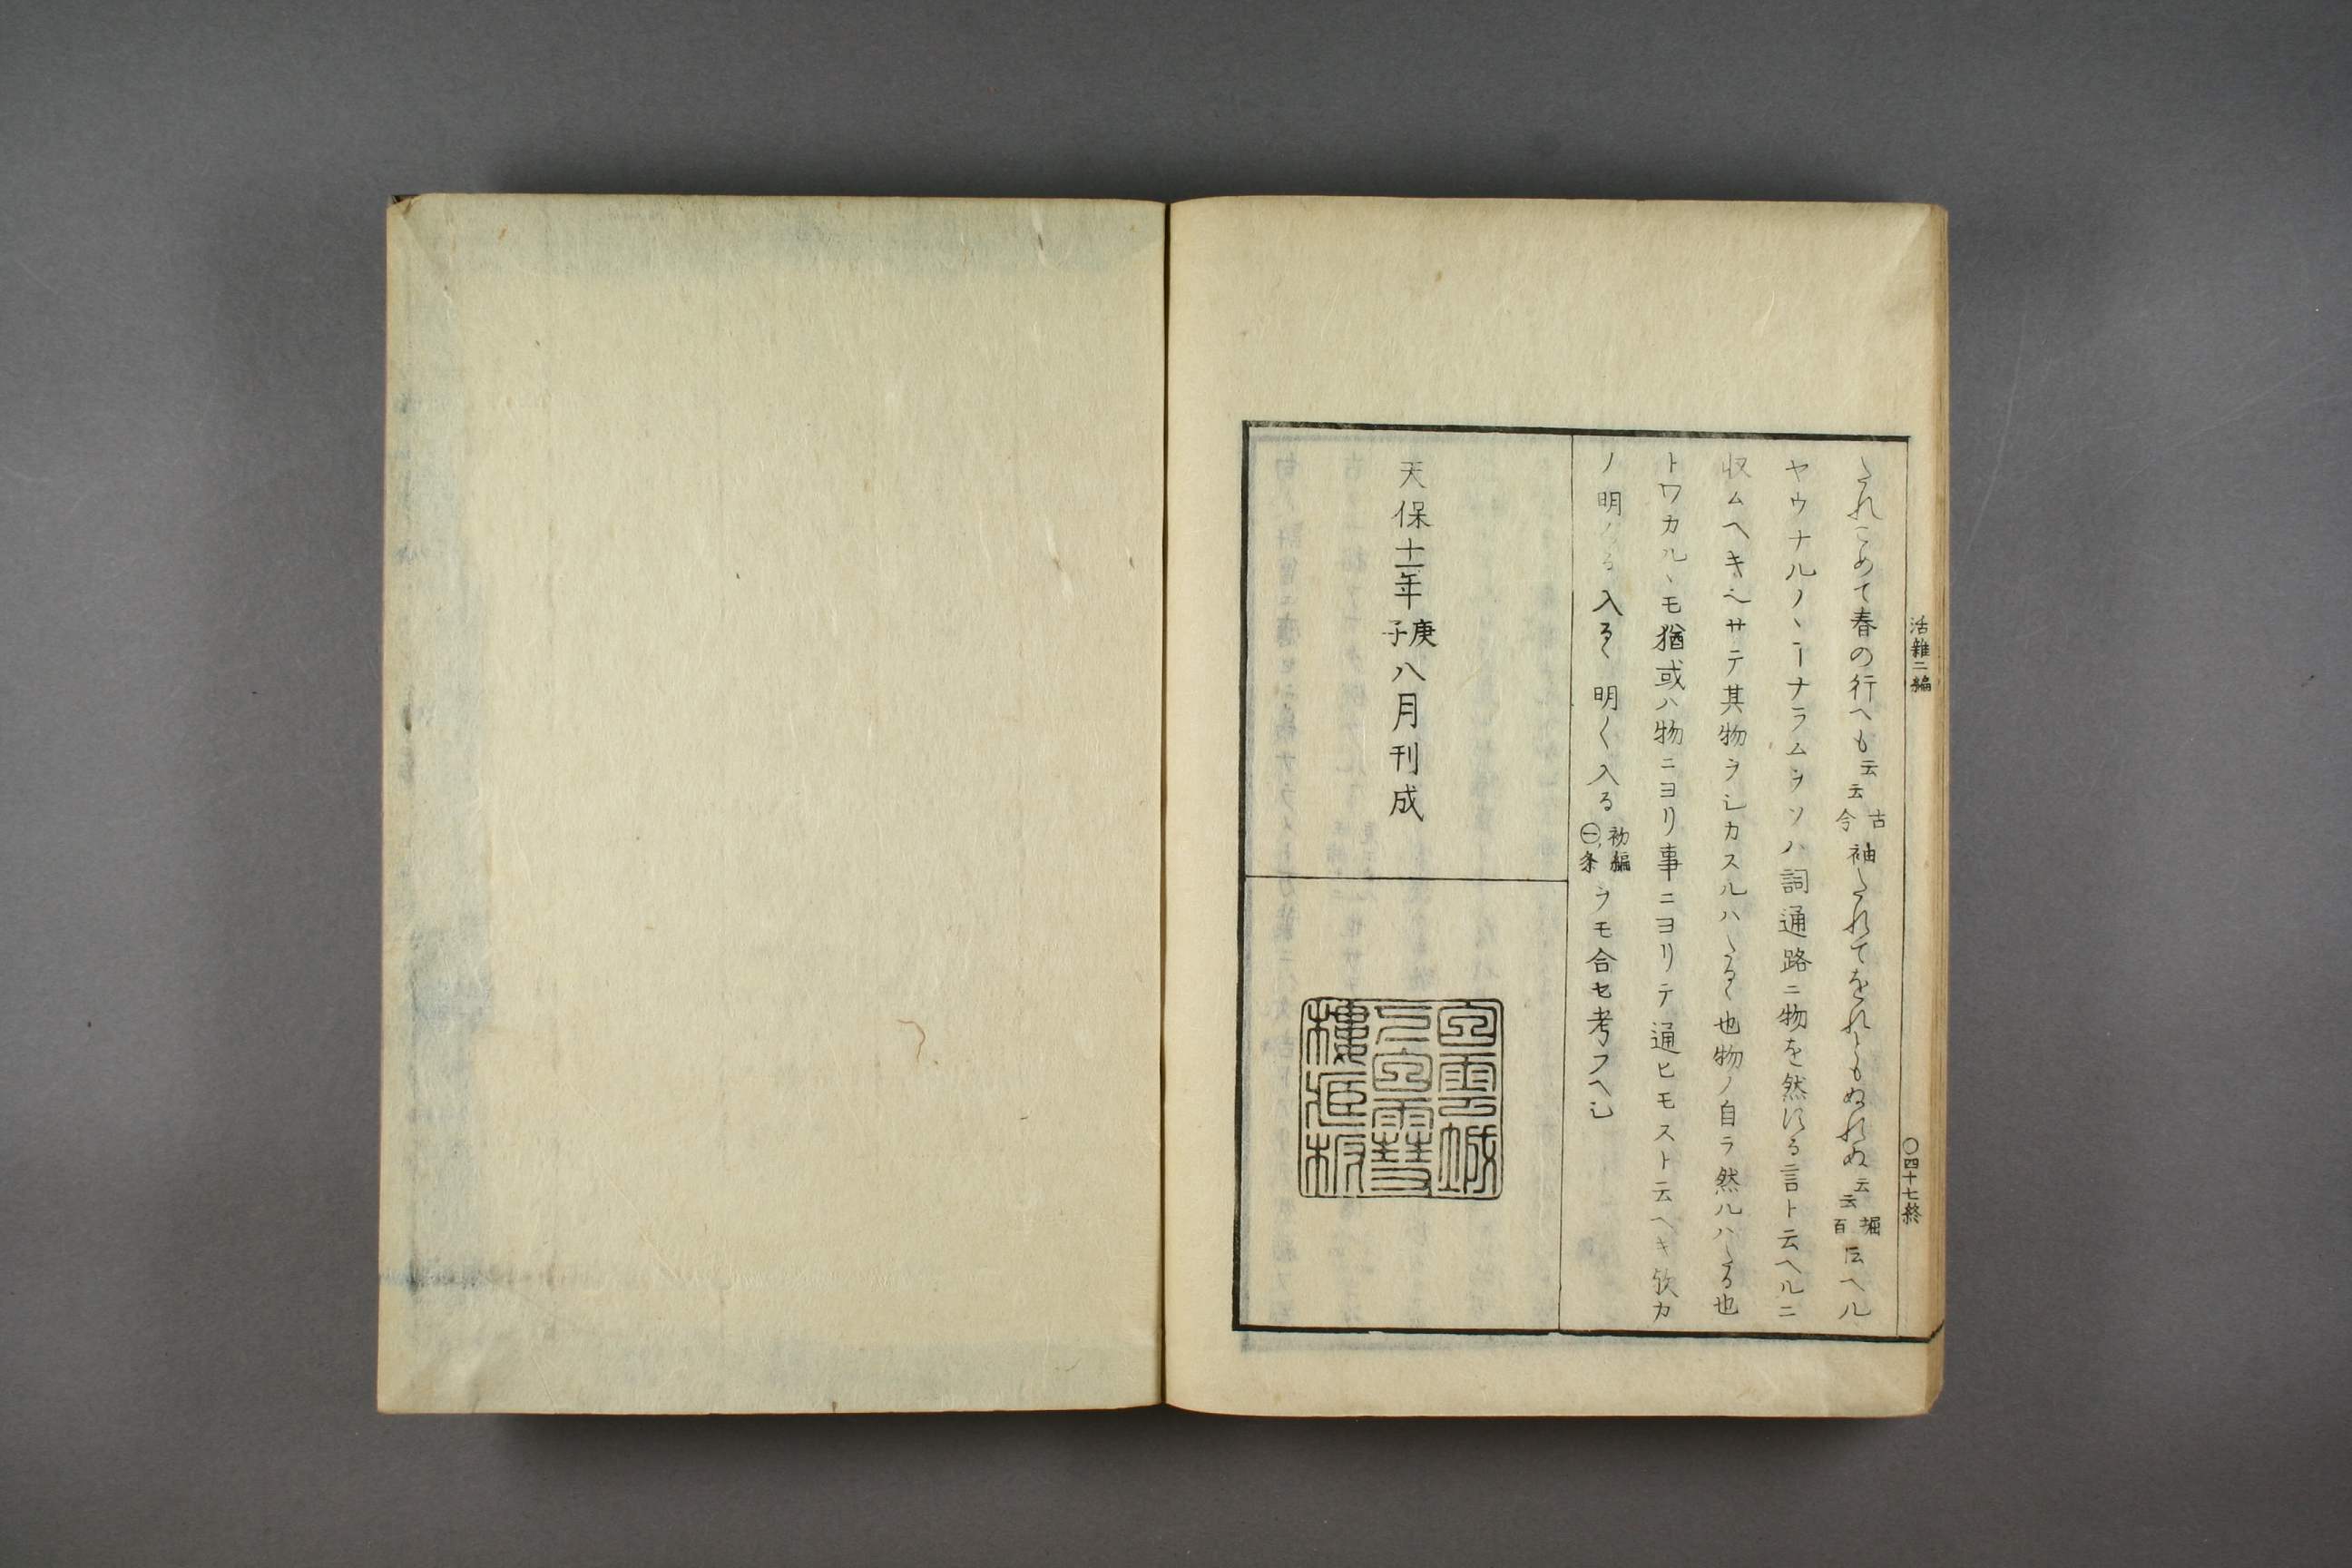 たれこめて春の行へも云云古今袖たれてをれともぬれぬ云云堀百伝ヘル
ヤウナルノヽヿナラムヲソハ詞通路ニ物を然する言ト云ヘルニ
収ムヘキ也サテ其物ヲシカスルハたるゝ也物ノ自ラ然ルハたる也
トワカルヽモ猶或ハ物ニヨリ事ニヨリテ通ヒモスト云ヘキ歟カ
ノ明ノゝる入るゝ明ノく入る初編㊀条ヲモ合セ考フヘシ
天保十一年庚子八月刊成
活雑二編
〇四十七終